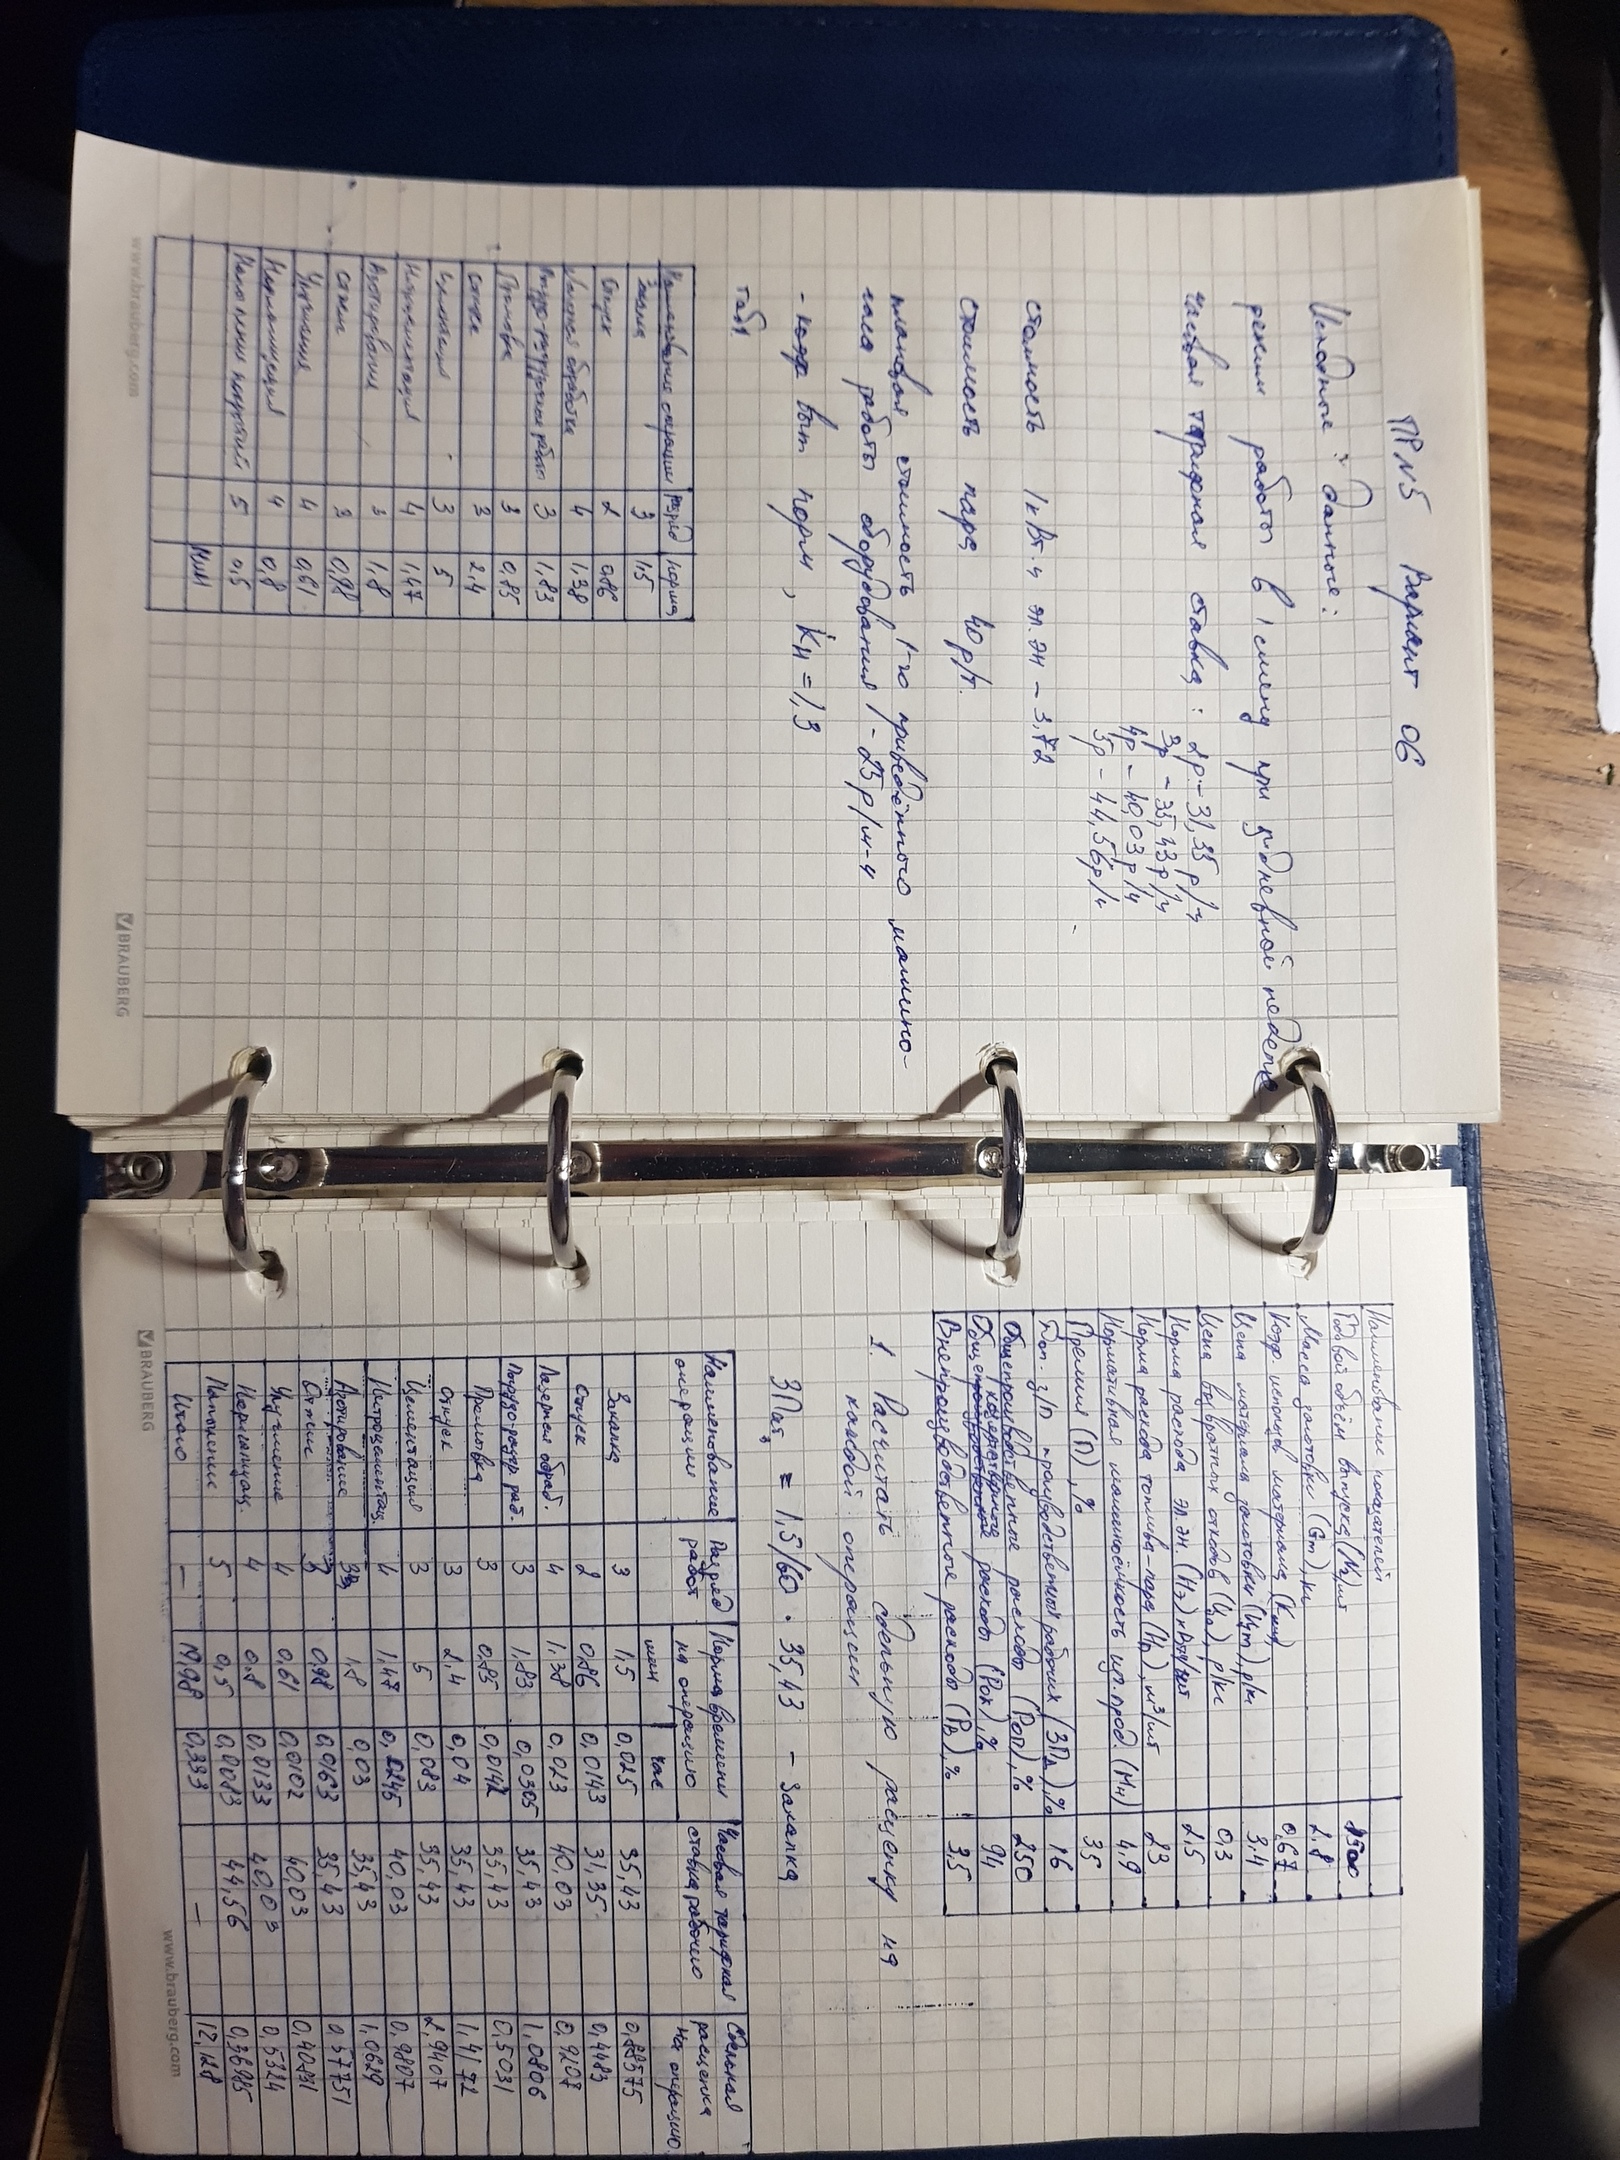 ПР №5 Вариант 06
Исходные данные:
режим работы в 1 смену при 5-дневной неделе
часовая тарифная ставка: 2р - 31,35 р/ч
3р - 35,43 р/ч
4р - 40,03 р/ч
5р - 44,56 р/ч
стоимость 1 кВт.ч эл.эн - 3,72
стоимость пара 40 р/т.
плановая стоимость 1-го приведённого машино-
часа работы оборудования - 25 р/м-ч
- вып норм, Кн = 1,3
таб1.
Наименование операции разряд норма
Закалка 3 1,5
Отпуск 2 0,86
Лазерная обработка 4 1,38
Погрузо-разгрузочные работы 3 1,83
Промывка 3 0,85
отпуск 3 2,4
Цементация 3 5
Нитроцементация 4 1,47
Азотирование 3 1,8
отжиг 3 0,98
Улучшение 4 0,61
Нормализация 4 0,8
Напыление покрытий 5 0,5
мин
www.brauberg.com BRAUBERG
Наименование показателей
Годовой объём выпуска (Nг), шт 1500
Масса заготовки (Gm), кг 2,8
Коэф. использов материала (Ким) 0,67
Цена материала заготовки (Цm), р/кг 3,4
Цена возвратных отходов (Цо), р/кг 0,3
Норма расхода эл.эн. (Нэ) кВтч/шт 2,5
Норма расхода топлива-пара (Нп), м³/шт 23
Нормативная машиноёмкость изг. прод. (Мн) 4,9
Премия (П), % 35
Доп. з/п производственных рабочих (ЗПд), % 16
Общепроизводственные расходы (Роп), % 250
Общехозяйственные расходы (Рох), % 94
Внепроизводственные расходы (Рв), % 3,5
1. Расчитать сдельную расценку на
каждой операции
ЗПат₃ = 1,5/60 · 35,43 - Закалка
Наименование операции Разряд работ Норма времени на операцию Часовая тарифная ставка рабочего Сдельная расценка на операцию
мин час
Закалка 3 1,5 0,025 35,43 0,88575
Отпуск 2 0,86 0,0143 31,35 0,4483
Лазерная обраб. 4 1,38 0,023 40,03 0,9207
Погрузо-разгр. раб. 3 1,83 0,0305 35,43 1,0806
Промывка 3 0,85 0,0142 35,43 0,5031
Отпуск 3 2,4 0,04 35,43 1,4172
Цементация 3 5 0,083 35,43 2,9407
Нитроцементац. 4 1,47 0,0245 40,03 0,9807
Азотирование 3 1,8 0,03 35,43 1,0629
Отжиг 3 0,98 0,0163 35,43 0,57751
Улучшение 4 0,61 0,0102 40,03 0,40831
Нормализац. 4 0,8 0,0133 40,03 0,5324
Напыление 5 0,5 0,0083 44,56 0,36985
Итого — 19,98 0,333 — 12,128
BRAUBERG www.brauberg.com